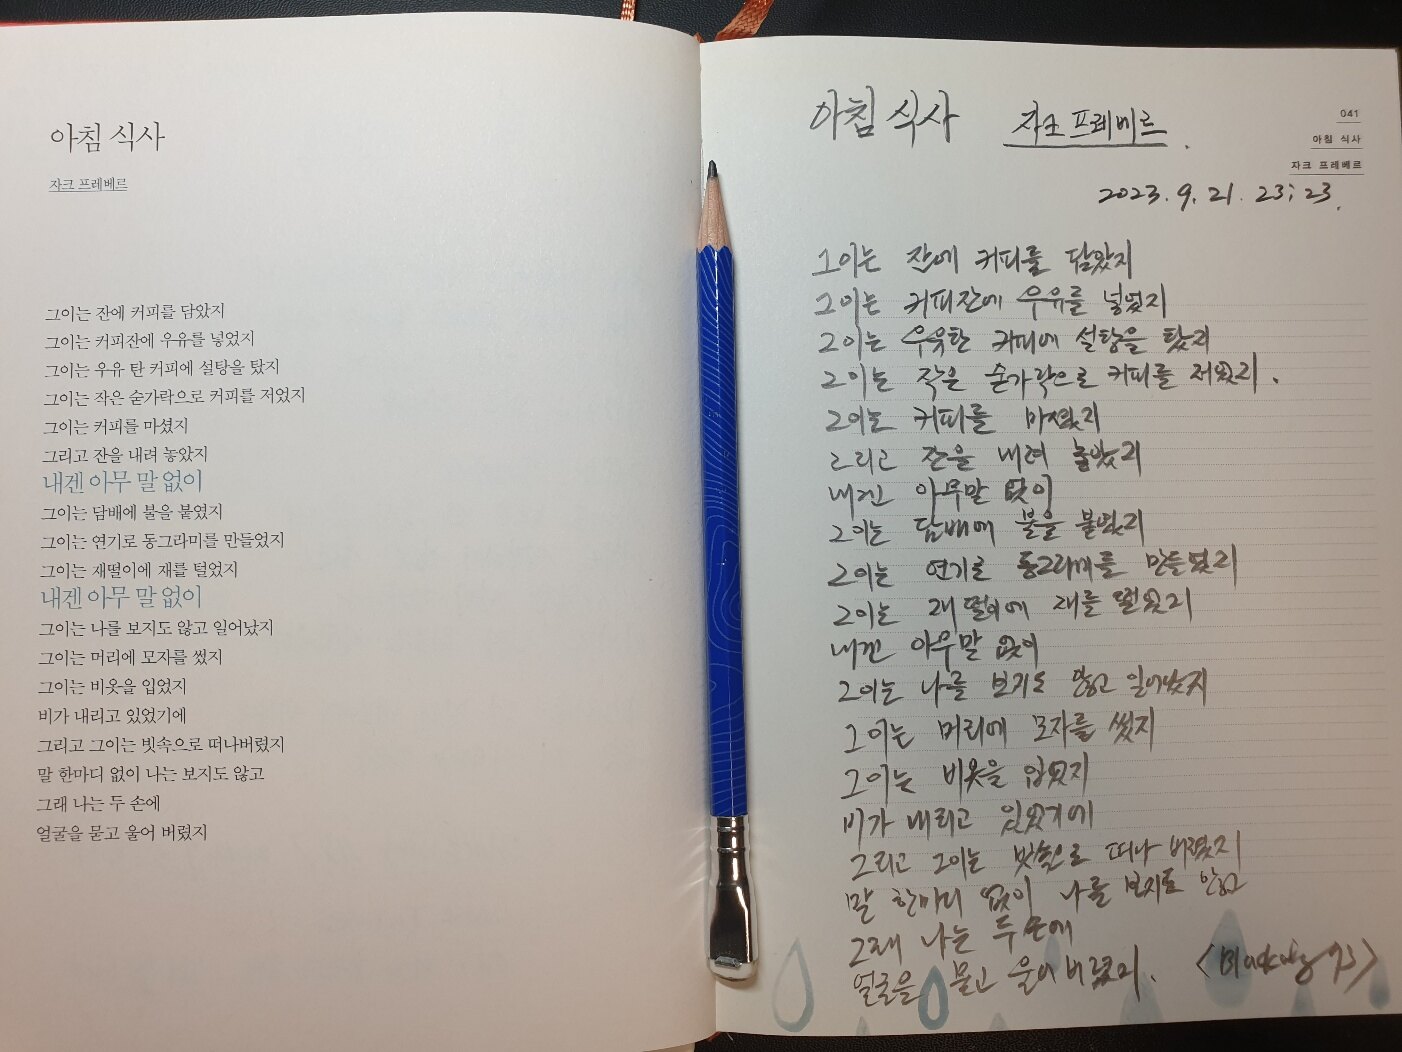 아침 식사
자크 프레베르
그이는 잔에 커피를 담았지
그이는 커피잔에 우유를 넣었지
그이는 우유 탄 커피에 설탕을 탔지
그이는 작은 숟가락으로 커피를 저었지
그이는 커피를 마셨지
그리고 잔을 내려 놓았지
내겐 아무 말 없이
그이는 담배에 불을 붙였지
그이는 연기로 동그라미를 만들었지
그이는 재떨이에 재를 털었지
내겐 아무 말 없이
그이는 나를 보지도 않고 일어났지
그이는 머리에 모자를 썼지
그이는 비옷을 입었지
비가 내리고 있었기에
그리고 그이는 빗속으로 떠나버렸지
말 한마디 없이 나는 보지도 않고
그래 나는 두 손에
얼굴을 묻고 울어 버렸지
아침 식사 자크 프레베르.
041
아침 식사
자크 프레베르
2023. 9. 21. 23:23.
그이는 잔에 커피를 담았지
그이는 커피잔에 우유를 넣었지
그이는 우유탄 커피에 설탕을 탔지
그이는 작은 숟가락으로 커피를 저었지.
그이는 커피를 마셨지
그리고 잔을 내려 놓았지
내겐 아무말 없이
그이는 담배에 불을 붙였지
그이는 연기로 동그라미를 만들었지
그이는 재떨이에 재를 털었지
내겐 아무말 없이
그이는 나를 보지도 않고 일어났지
그이는 머리에 모자를 썼지
그이는 비옷을 입었지
비가 내리고 있었기에
그리고 그이는 빗속으로 떠나 버렸지
말 한마디 없이 나를 보지도 않고
그래 나는 두 손에
얼굴을 묻고 울어 버렸지.